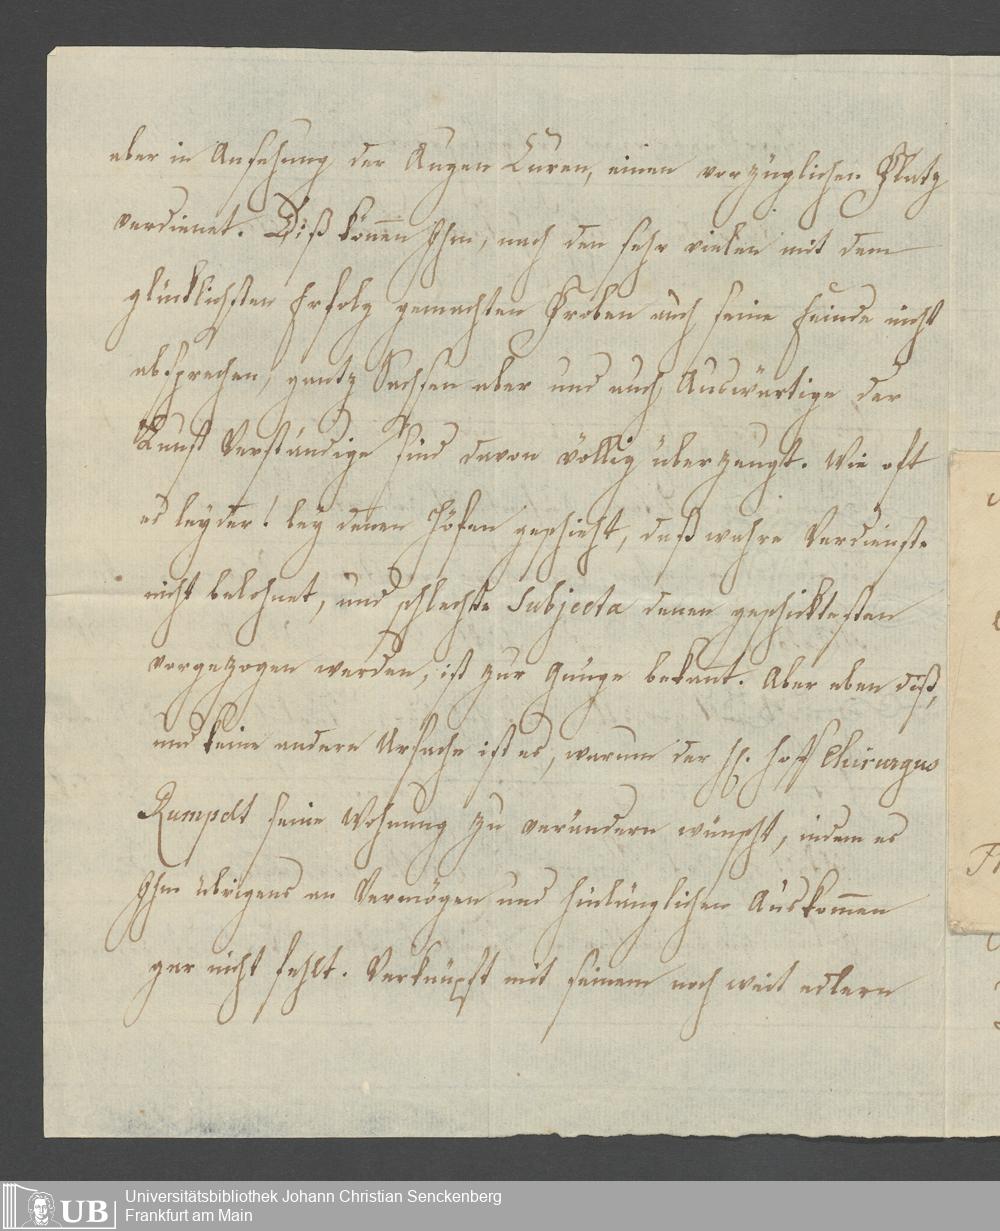 aber in Ansehung der Augen Curen, einen vorzüglichen Platz
verdienet. Diß können Ihm, nach den sehr vielen mit dem
glücklichsten Erfolg gemachten Proben auch seine Feinde nicht
absprechen, gantz Sachsen aber und auch Auswärtige der
Kunst Verständige sind davon völlig überzeugt. Wie oft
es leyder! bey denen Höfen geschieht, daß wahre Verdienste
nicht belohnet, und schlechte Subjecta denen geschicktesten
vorgezogen werden, ist zur Gnüge bekant. Aber eben diß,
und keine andere Ursache ist es, warum der H. Hoff Chirurgus
Rumpelt seine Wohnung zu verändern wünscht, indem es
Ihm übrigens an Vermögen und hinlänglichen Auskommen
gar nicht fehlt. Verknüpft mit seinem noch weit edlern
Universitätsbibliothek Johann Christian Senckenberg
Frankfurt am Main
UB